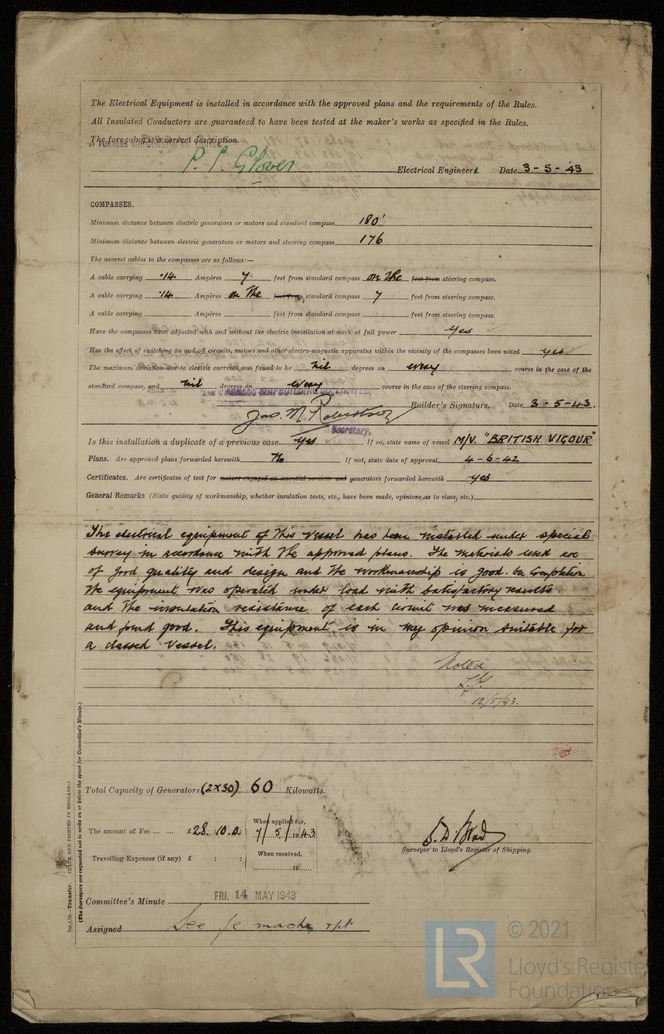 The Electrical Equipment is installed in accordance with the approved plans and the requirements of the Rules.
All Insulated Conductors are guaranteed to have been tested at the maker's works as specified in the Rules.
The foregoing is a correct description.
P. P. Glover Electrical Engineers. Date 3-5-43
COMPASSES.
Minimum distance between electric generators or motors and standard compass 180'
Minimum distance between electric generators or motors and steering compass 176
The nearest cables to the compasses are as follows:—
A cable carrying .14 Ampères 7 feet from standard compass on the feet from steering compass.
A cable carrying .14 Ampères on the feet from standard compass 7 feet from steering compass.
A cable carrying Ampères feet from standard compass feet from steering compass.
Have the compasses been adjusted with and without the electric installation at work at full power yes
Has the effect of switching on and off circuits, motors and other electro-magnetic apparatus within the vicinity of the compasses been noted yes
The maximum deviation due to electric currents was found to be nil degrees on every course in the case of the
standard compass, and nil degrees on every course in the case of the steering compass.
Jas. M. Robertson Builder's Signature. Date 3-5-43.
Secretary.
Is this installation a duplicate of a previous case Yes If so, state name of vessel M/V. "BRITISH VIGOUR"
Plans. Are approved plans forwarded herewith No If not, state date of approval 4-6-42
Certificates. Are certificates of test for motors engaged on essential services and generators forwarded herewith yes
General Remarks (State quality of workmanship, whether insulation tests, etc., have been made, opinions as to class, etc.)
The electrical equipment of this vessel has been installed under special
survey in accordance with the approved plans. The materials used are
of good quality and design and the workmanship is good. On completion
the equipment was operated under load with satisfactory results
and the insulation resistance of each circuit was measured
and found good. This equipment is in my opinion suitable for
a classed vessel.
Noted
12/5/43.
Total Capacity of Generators (2X30) 60 Kilowatts.
The amount of Fee ... ... £28.10.0: When applied for, 7/5/1943
Travelling Expenses (if any) £ : : When received, 19
Surveyor to Lloyd's Register of Shipping.
Committee's Minute FRI. 14 MAY 1943
Assigned See
Transfer. (MADE AND PRINTED IN ENGLAND.)
(The Surveyors are requested not to write on or below the space for Committee's Minute.)
LR
© 2021
Lloyd's Register
Foundation